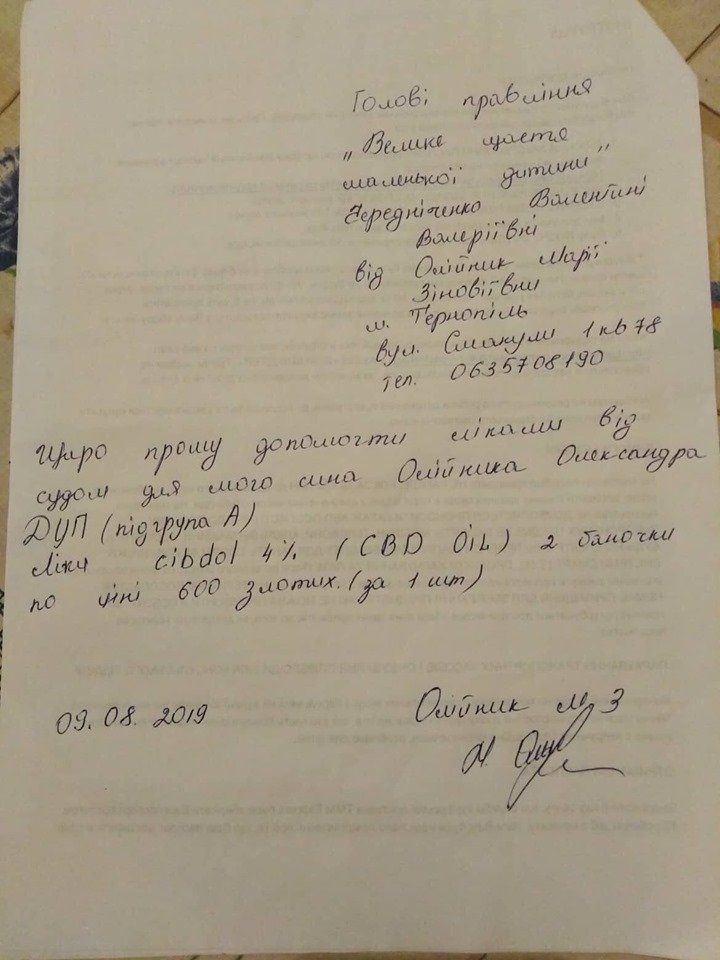 Голові правління
„Велике щастя
маленької дитини"
Чередніченко Валентині
Валеріївні
від Олійник Марії
Зіновіївни
м. Тернопіль
вул. Смакули 1 кв 78
тел. 0635708190
Щиро прошу допомогти ліками від
судом для мого сина Олійника Олександра
ДЦП (підгрупа А)
Ліки cibdol 4% (CBD OiL) 2 баночки
по ціні 600 злотих. (за 1 шт)
09.08.2019
Олійник М З